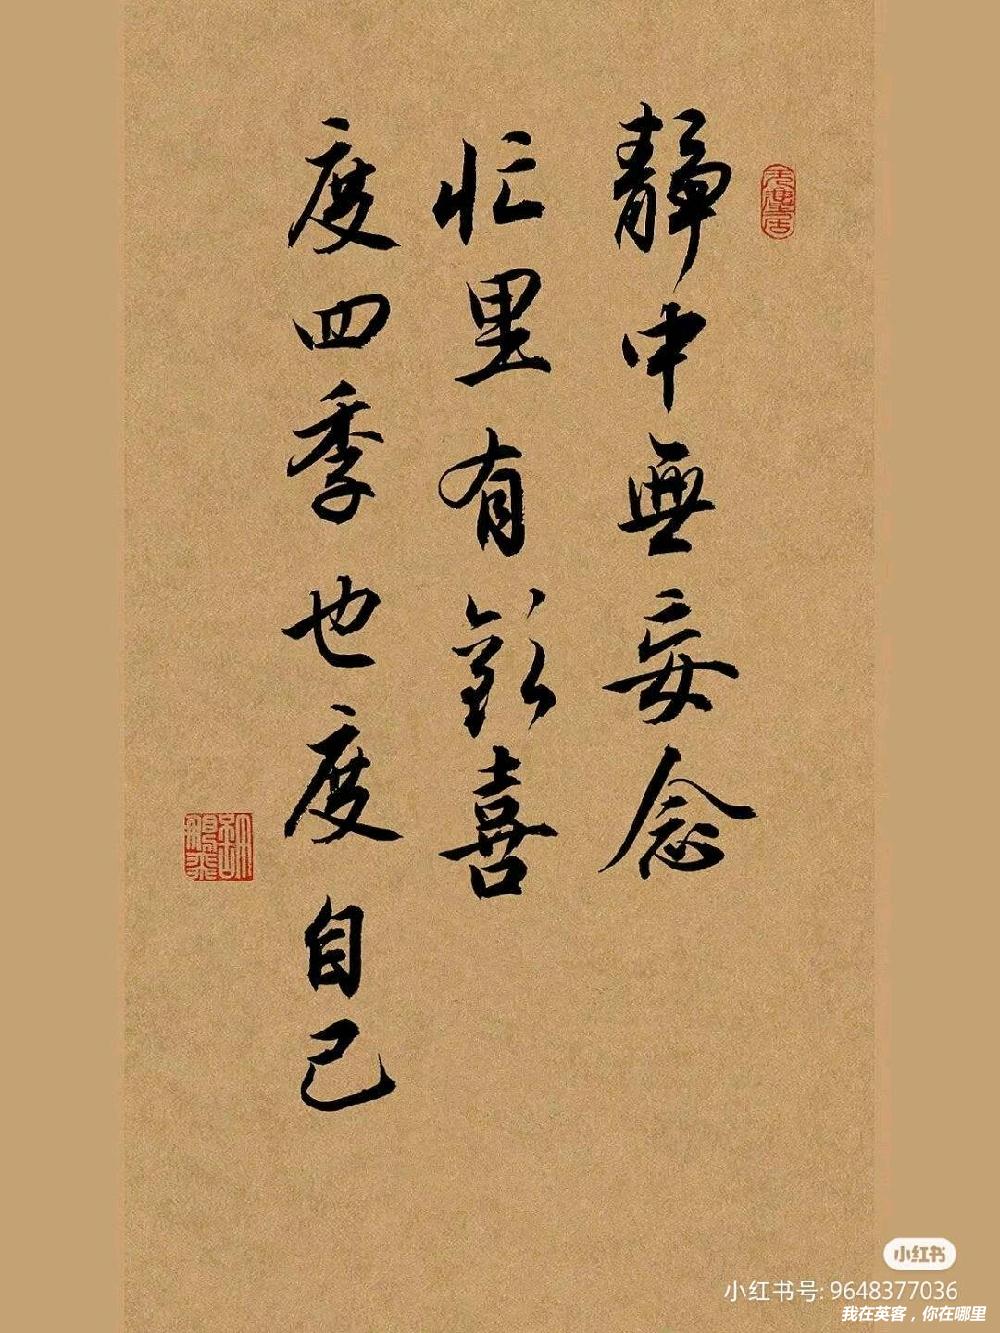 靜中無妄念
忙里有歡喜
度四季也度自己
小红书
小红书号: 9648377036
我在英客，你在哪里